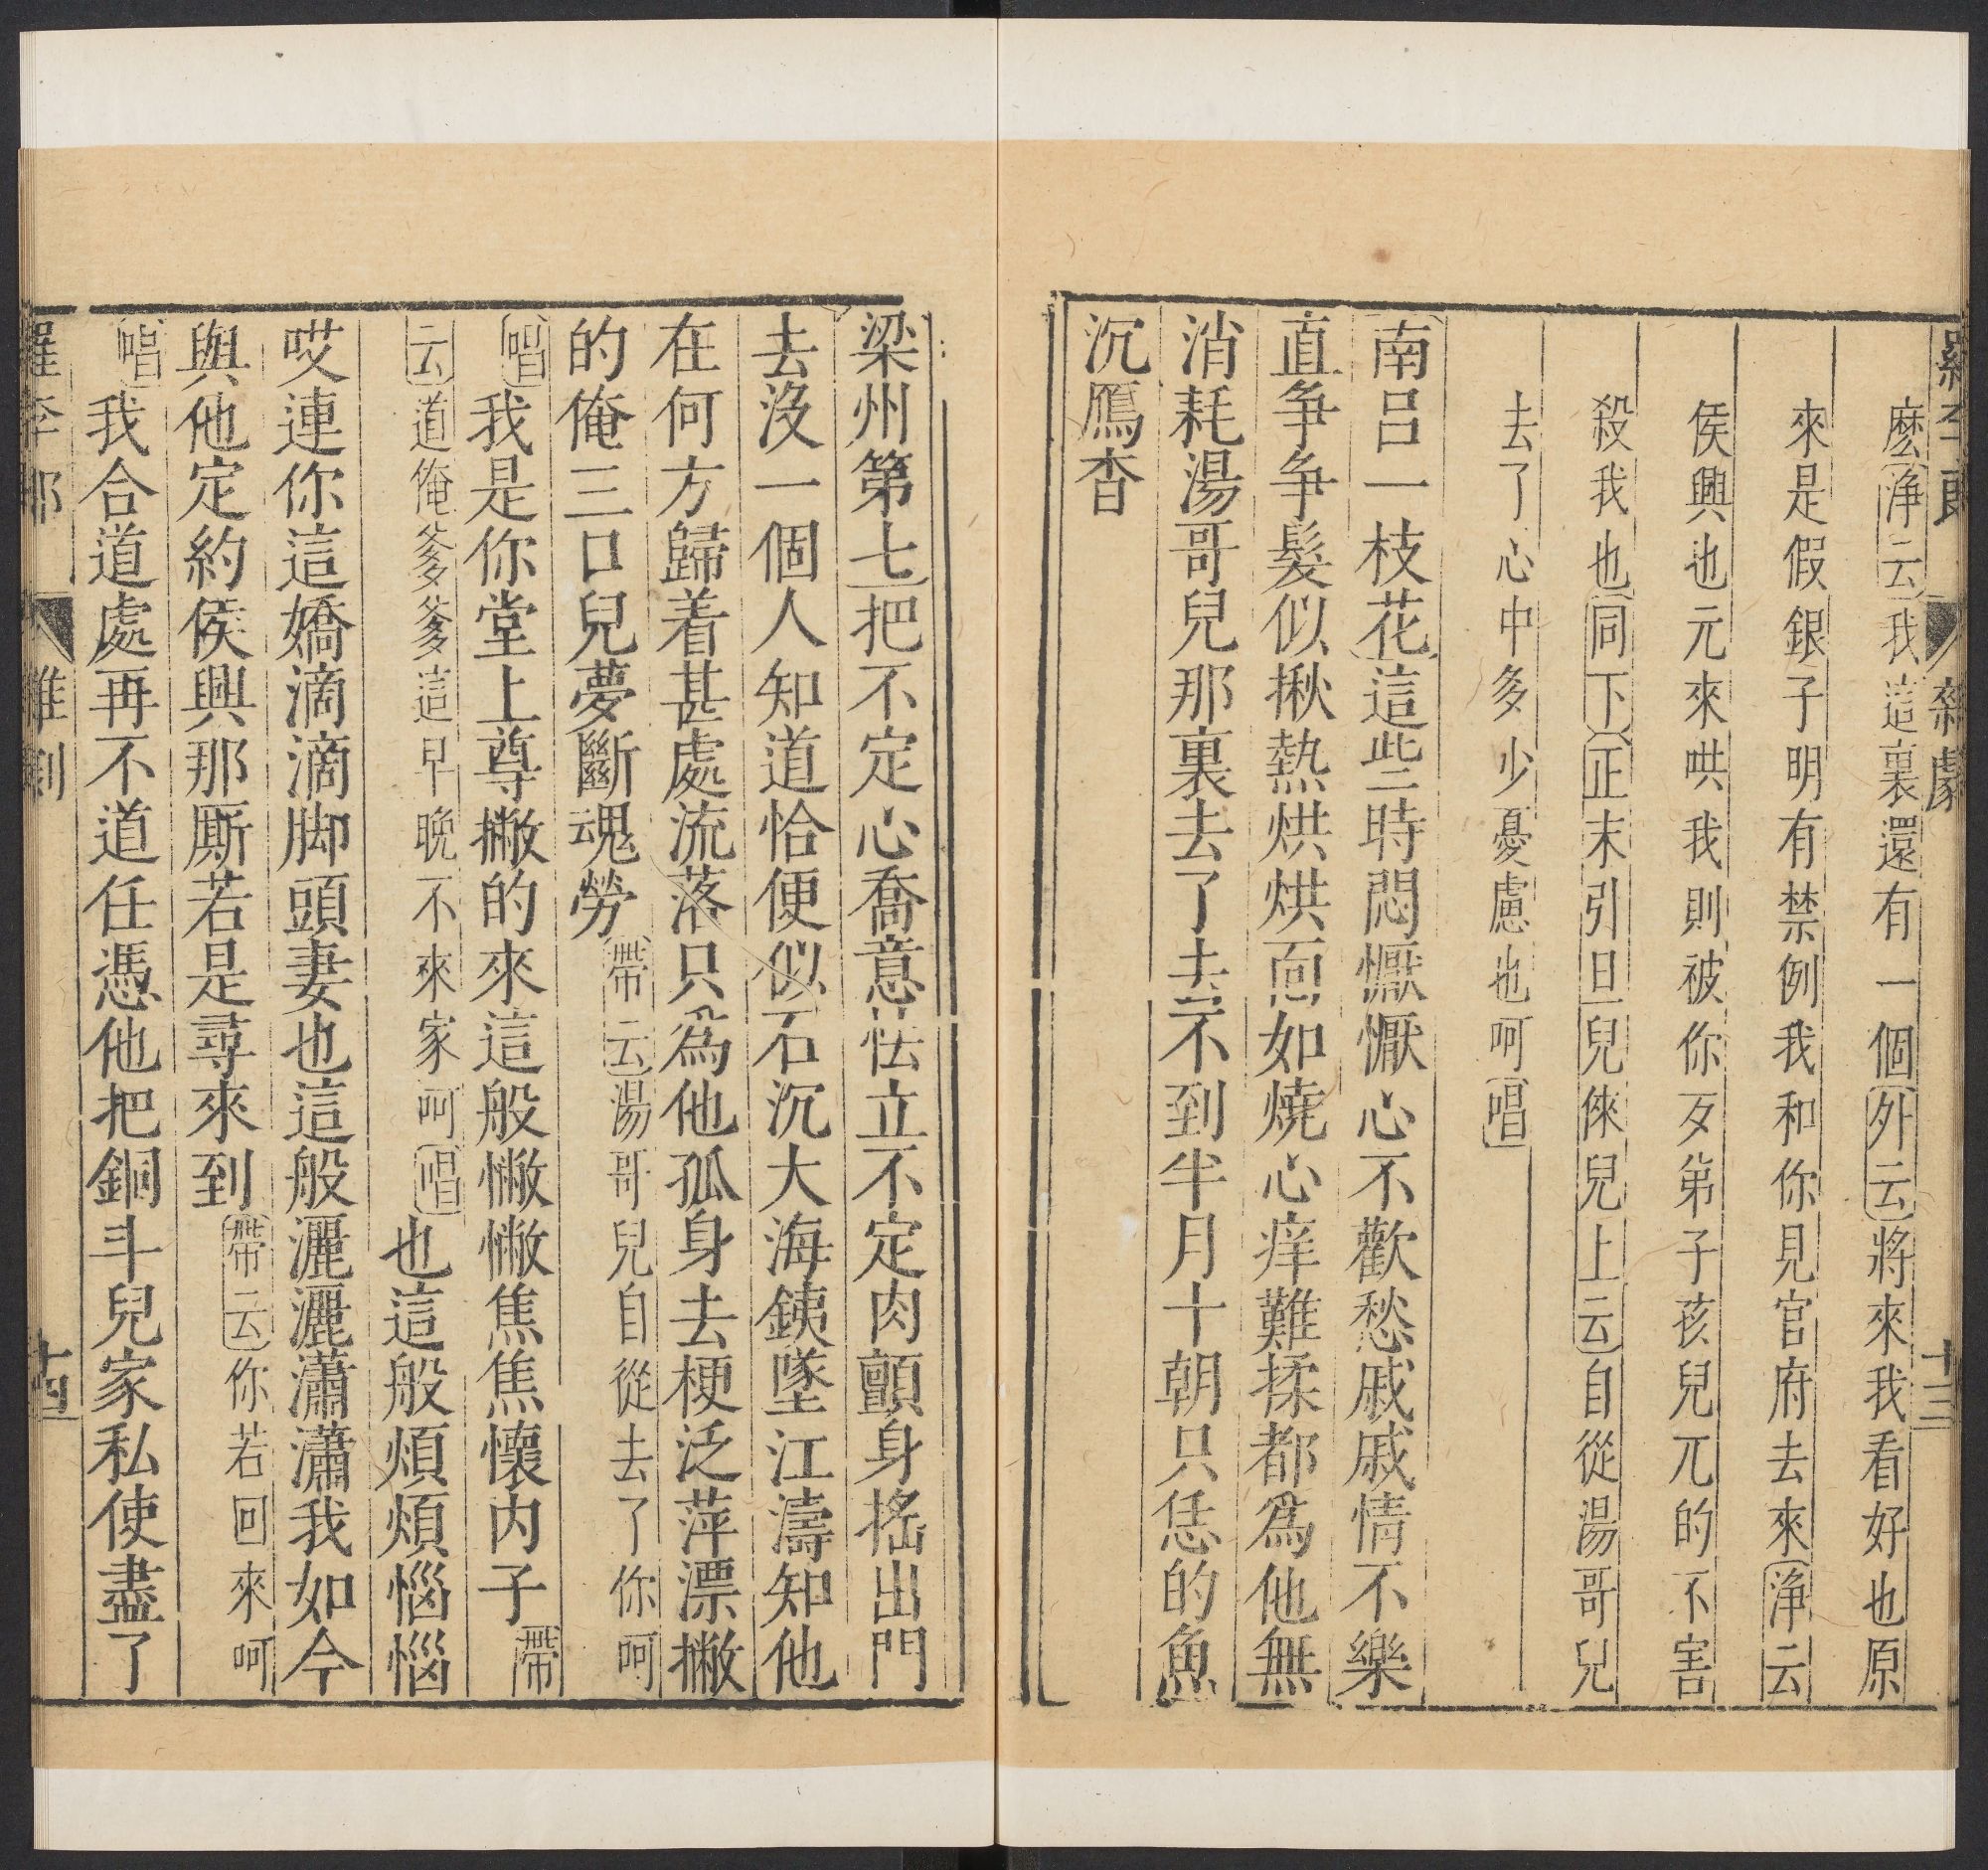 麽淨云我這裏還有一個外云將來我看好也原
來是假銀子明有禁例我和你見官府去來淨云
侯興也元來哄我則被你歹弟子孩兒兀的不害
殺我也同下正末引旦兒倈兒上云自從湯哥兒
去了心中多少憂慮也呵唱
南吕一枝花這些時悶懨懨心不歡愁戚戚情不樂
直争争髮似揪熱烘烘面如燒心痒難揉都爲他無
消耗湯哥兒那裏去了去不到半月十朝只恁的魚
沉鴈杳
梁州第七把不定心喬意怯立不定肉顫身搖出門
去没一個人知道恰便似石沉大海鐵墜江濤知他
在何方歸着甚處流落只爲他孤身去梗泛萍漂撇
的俺三口兒夢斷魂勞帶云湯哥兒自從去了你呵
唱我是你堂上尊撇的來這般懒懒焦焦懷内子帶
云道俺爹爹這早晚不來家呵唱也這般煩煩惱惱
哎連你這嬌滴滴脚頭妻也這般灑灑瀟瀟我如今
與他定約侯興那厮若是尋來到帶云你若回來呵
唱我合道處再不道任憑他把銅斗兒家私使盡了
十三
十四